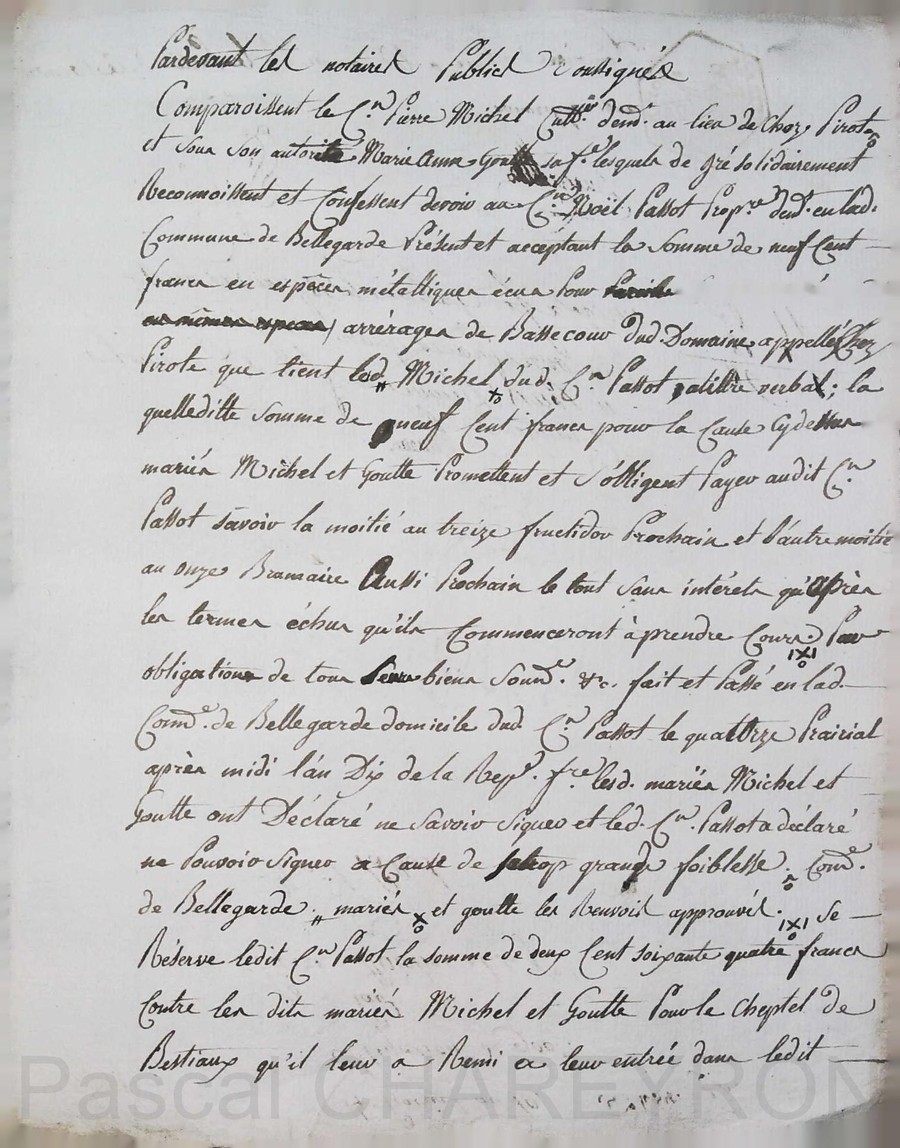 Pardevant les notaires Publics soussignés
Comparoissent le C.en Pierre Michel Cultt.eur demt. au lieu de Chez Pirot
et sous son autorité Marie Anne Goutte sa f.e lesquels de gré solidairement
Reconnoissent et Confessent devoir au C.en Noël Passot Prop.re demt. en lad.
Commune de Bellegarde Présent et acceptant la somme de neuf Cent
francs en espèces métalliques écus Pour
arrérages de Bassecour dud. Domaine appellé Chez
Pirote que tient led. Michel dud. C.en Passot a tittre verbal; la
quelleditte somme de neuf Cent francs pour la Cause Cydessus
mariés Michel et Goutte Promettent et s'obligent Payer audit C.en
Passot savoir la moitié au treize fructidor Prochain et l'autre moitié
au onze Bramaire Aussi Prochain le tout sans intérets qu'après
les termes échus qu'ils Commenceront à prendre Cours. Par
obligations de tous leurs biens Soum.e &c. fait et Passé en lad.
Com.e de Bellegarde domicile dud. C.en Passot le quattrze Prairial
après midi l'an Dix de la Rep.e f.se lesd. mariés Michel et
Goutte ont Déclaré ne Savoir Signer et led. C.en Passot a déclaré
ne Pouvoir Signer a Cause de sa trop grande foiblesse. Com.e
de Bellegarde. mariés et goutte les Renvois approuvés. Se
Réserve ledit C.en Passot la somme de deux Cent soixante quatre francs
Contre les dits mariés Michel et Goutte Pour le Cheptel de
Bestiaux qu'il leur a Remi a leur entrée dans ledit
Pascal CHAREYRON